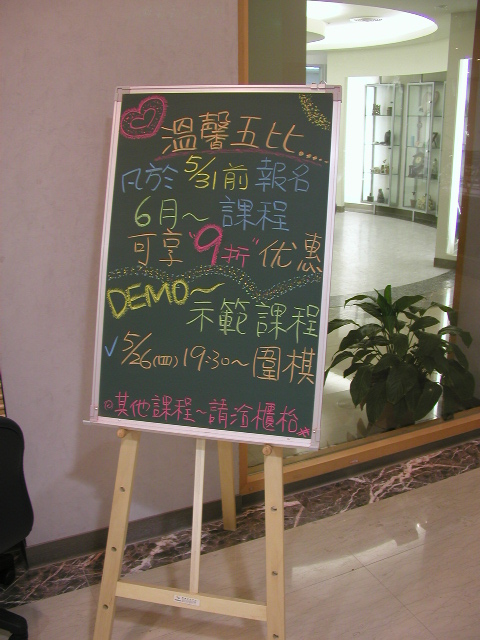 溫馨五比....
凡於5/31前報名
6月~課程
可享"9折"优惠
DEMO~
示範課程
✓5/26(四)19:30~圍棋
◎其他課程~請洽櫃枱